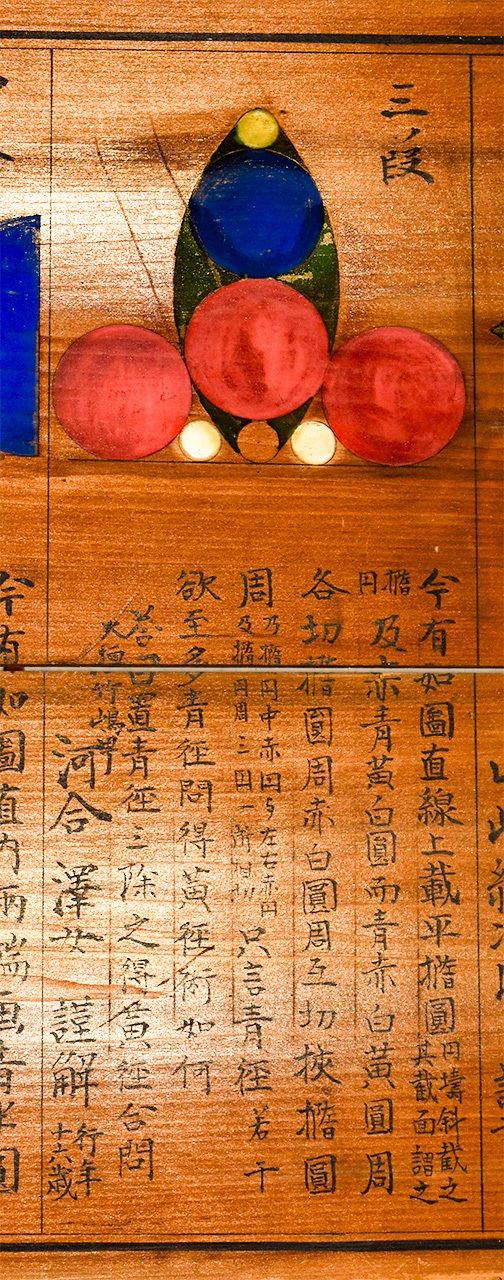 三ノ段
今有如圖直線上載平楕圓円壔斜截之其截面謂之
楕円及赤青黄白圓而青赤白黄圓周
各切楕圓周赤白圓周互切挾楕圓
周乃楕円中赤円与左右赤円及楕円周三円一所相切只言青径若干
欲至多青径問得黄径術如何
答曰置青径三除之得黄径合問
河合澤女謹解行年十六歳
今有如圖直内両端画青半圓